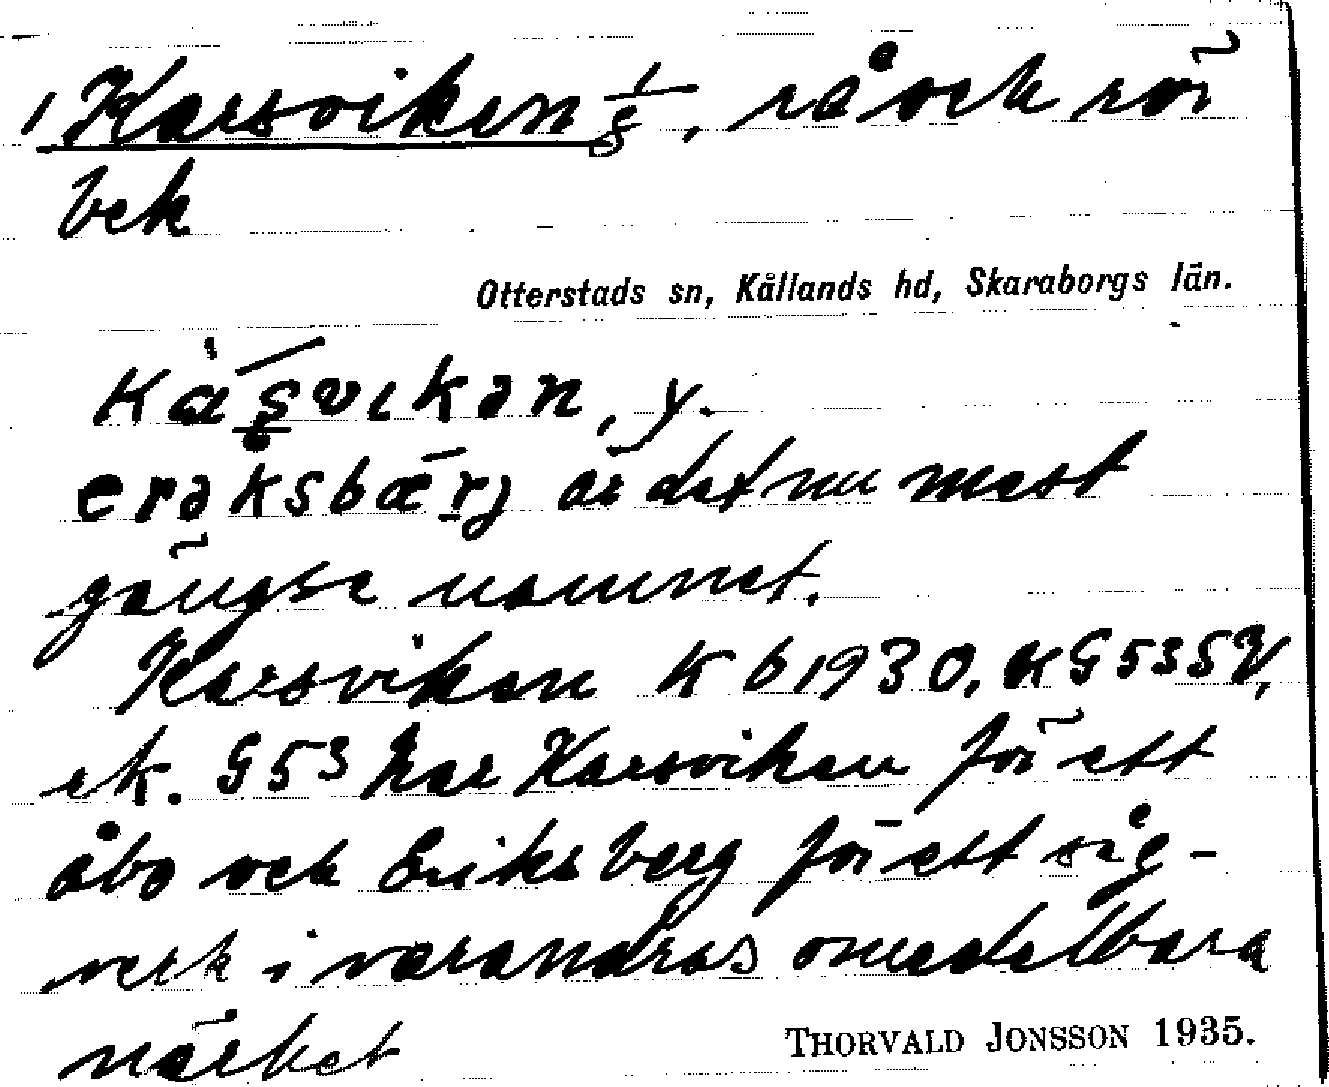 1 Karsviken 1/8, rå och rör
bek
Otterstads sn, Kållands hd, Skaraborgs län.
kàṣvikən, y.
erəksbærj är det nu mest
gängse namnet.
Karsviken Kb 1930. KG 535V,
ek. G 53 har Karsviken för ett
åbo och Eriksberg för ett såg-
verk i varandras omedelbara
närhet
THORVALD JONSSON 1935.